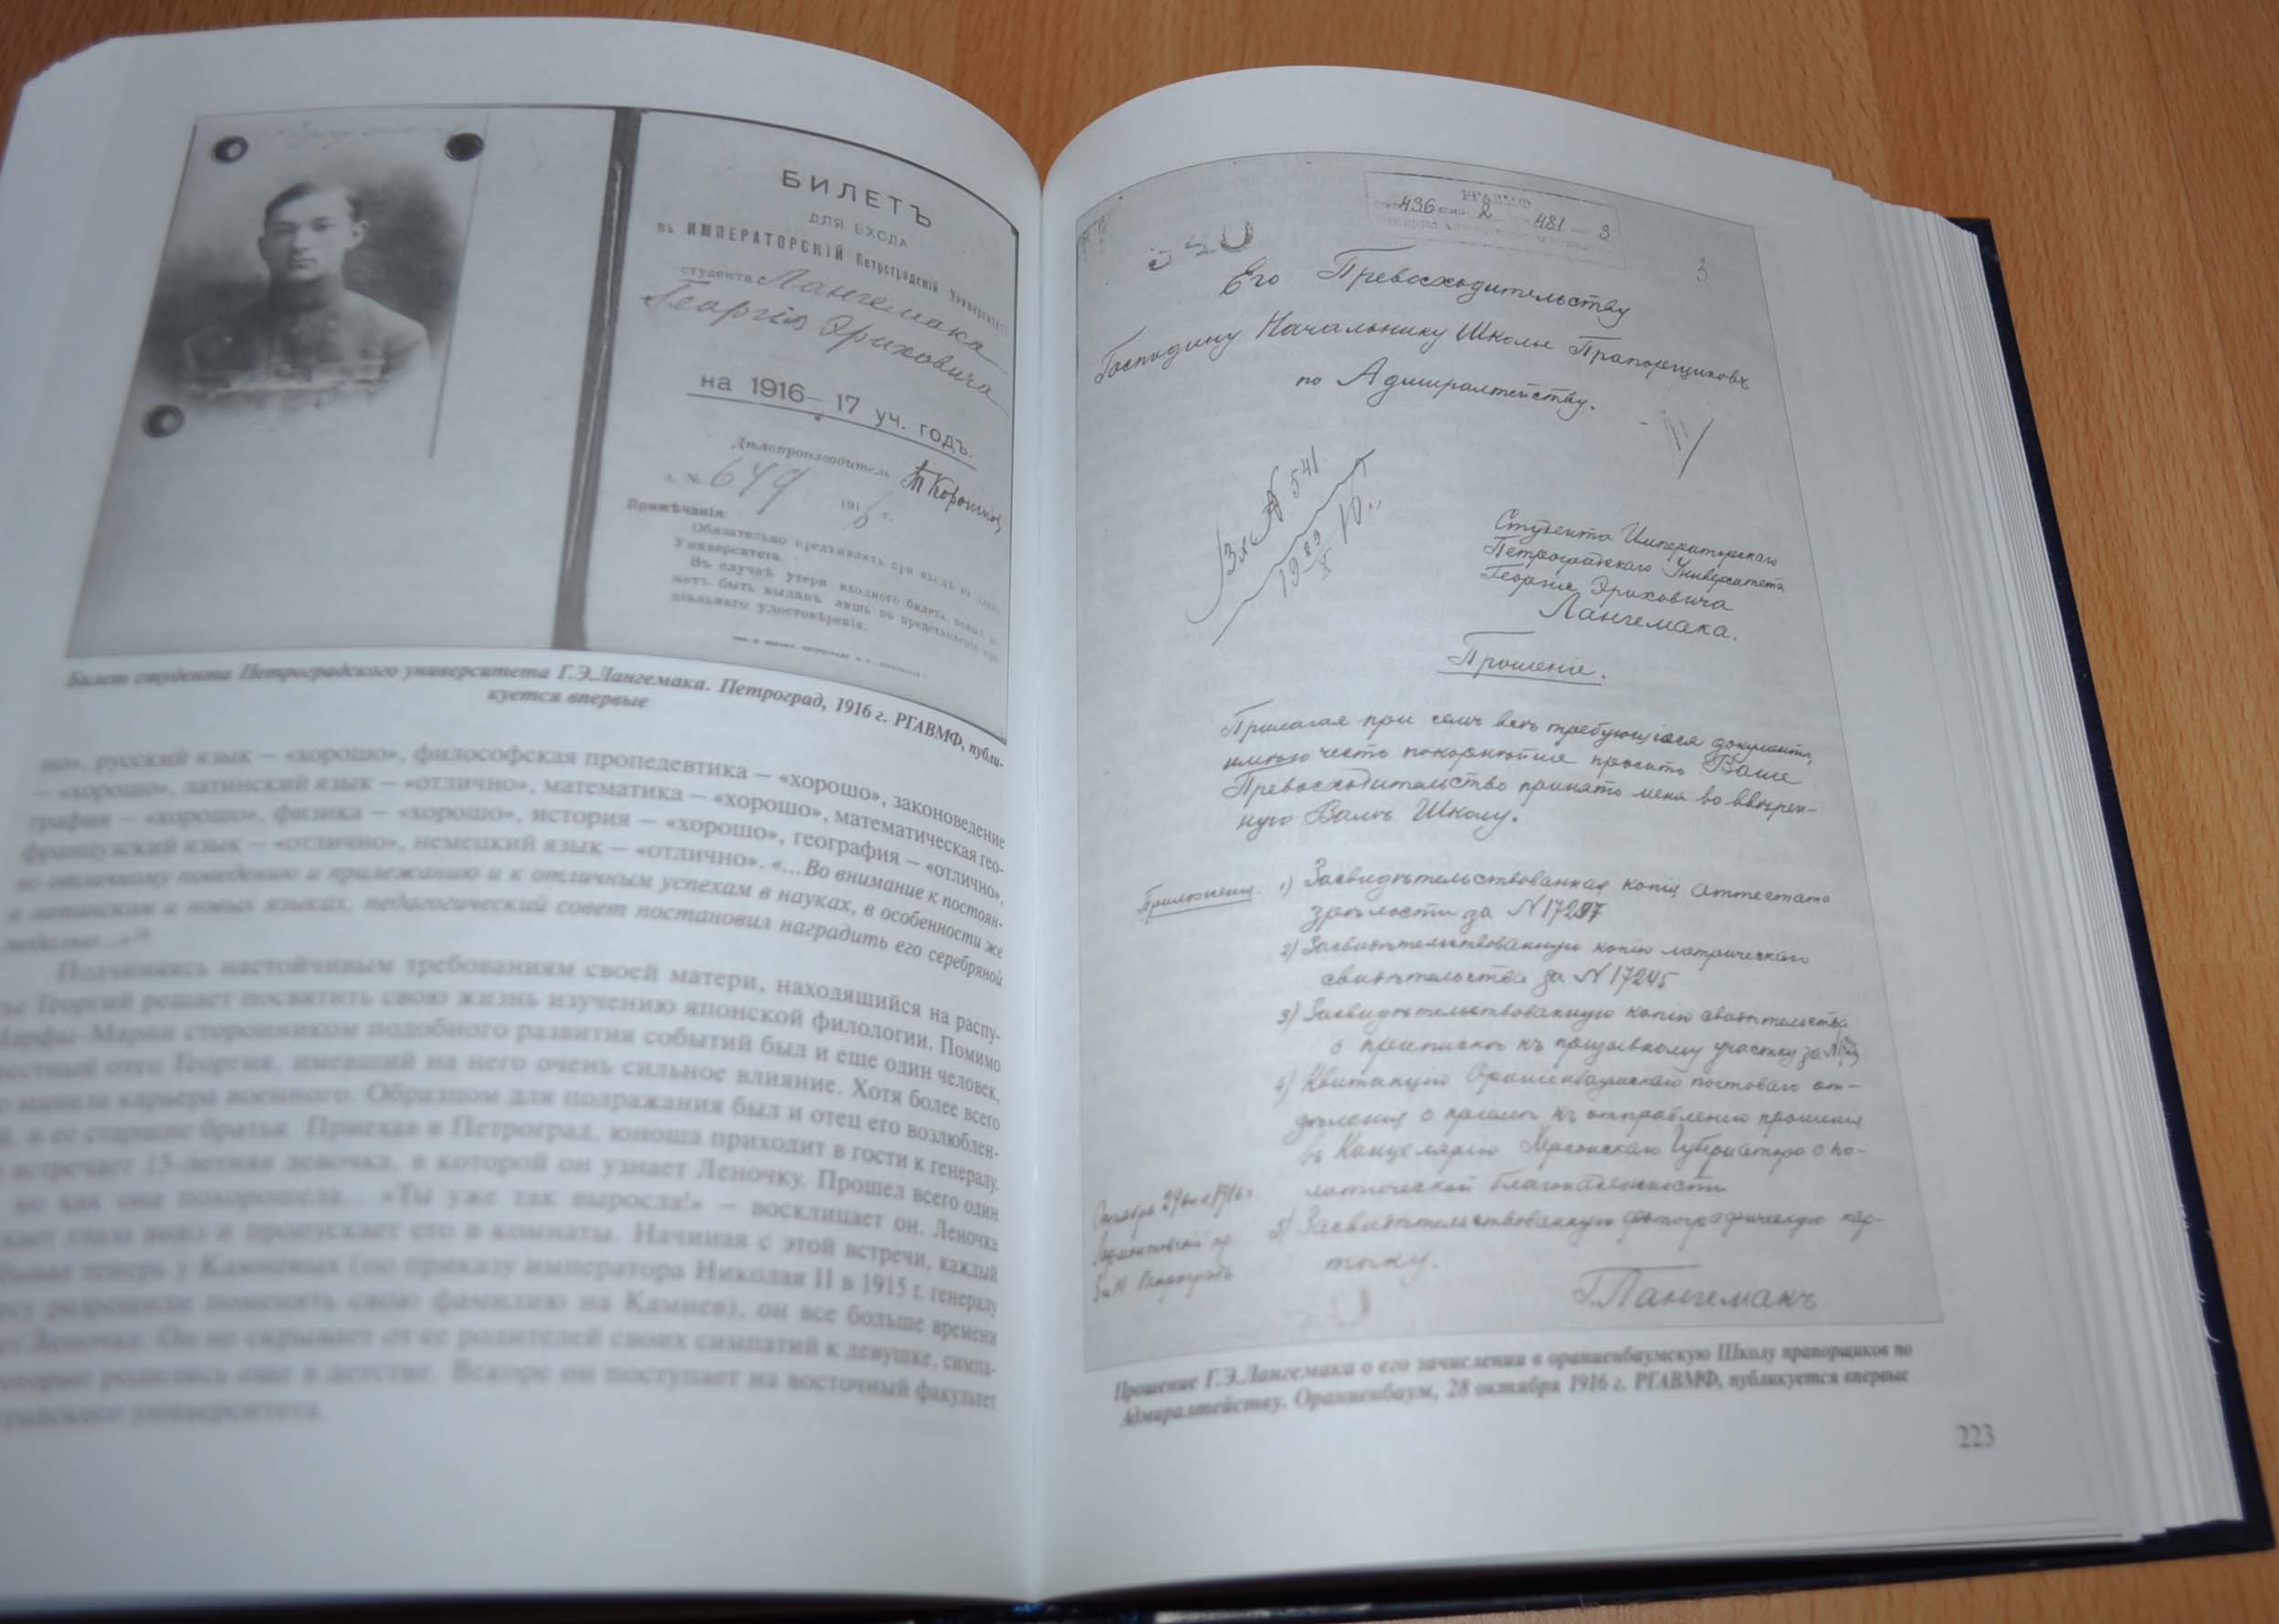 БИЛЕТЪ
ДЛЯ ВХОДА
въ ИМПЕРАТОРСКІЙ Петроградскій Университетъ
студента Лангемака
Георгія Эриховича
на 1916–17 уч. годъ.
Дѣлопроизводитель
№ 649 1916 г.
Примѣчанія
Обязательно предъявлять при входѣ въ
Университета.
Въ случаѣ утери входного билета, новый
жетъ быть выданъ лишь по представленіи
ціальнаго удостовѣренія.
Билет студента Петроградского университета Г.Э.Лангемака. Петроград, 1916 г. РГАВМФ, публи-
куется впервые
но», русский язык – «хорошо», философская пропедевтика – «хорошо», законоведение
– «хорошо», латинский язык – «отлично», математика – «хорошо», математическая гео-
графия – «хорошо», физика – «хорошо», история – «хорошо», география – «отлично»,
французский язык – «отлично», немецкий язык – «отлично». «...Во внимание к постоян-
но отличному поведению и прилежанию и к отличным успехам в науках, в особенности же
в латинском и новых языках, педагогический совет постановил наградить его серебряной
медалью...»
Подчиняясь настойчивым требованиям своей матери, находящийся на распу-
тье Георгий решает посвятить свою жизнь изучению японской филологии. Помимо
Марфы-Марии сторонником подобного развития событий был и еще один человек,
крестный отец Георгия, имевший на него очень сильное влияние. Хотя более всего
манила карьера военного. Образцом для подражания был и отец его возлюблен-
й, и ее старшие братья. Приехав в Петроград, юноша приходит в гости к генералу.
встречает 15-летняя девочка, в которой он узнает Леночку. Прошел всего один
но как она похорошела... «Ты уже так выросла!» – восклицает он. Леночка
глаза вниз и пропускает его в комнаты. Начиная с этой встречи, каждый
теперь у Камневых (по приказу императора Николая II в 1915 г. генералу
разрешили поменять свою фамилию на Камнев), он все больше времени
Леночке. Он не скрывает от ее родителей своих симпатий к девушке, симпа-
которые родились еще в детстве. Вскоре он поступает на восточный факультет
университета.
РГАВМФ
436 2 481 3
3
Его Превосходительству
Господину Начальнику Школы Прапорщиковъ
по Адмиралтейству.
Вх № 541
19 29/X 16
Студента Императорскаго
Петроградскаго Университета
Георгія Эриховича
Лангемака.
Прошеніе.
Прилагая при семъ всѣ требующіеся документы,
имѣю честь покорнѣйше просить Ваше
Превосходительство принять меня во ввѣрен-
ную Вамъ Школу.
Приложенія 1) Засвидѣтельствованная копія аттестата
зрѣлости за N 17297
2) Засвидѣтельствованную копію метрическаго
свидѣтельства за N 17245
3) Засвидѣтельствованную копію свидѣтельства
о припискѣ къ призывному участку за N
4) Квитанцію Ораніенбаумскаго почтоваго от-
дѣленія о пріемѣ къ отправленію прошенія
въ Канцелярію Херсонскаго Губернатора о по-
литической благонадежности
5) Засвидѣтельствованную фотографическую кар-
точку.
Октября 29 дня 1916 г.
Лермонтовскій пр.
Петроградъ
Г Лангемакъ
Прошение Г.Э.Лангемака о его зачислении в ораниенбаумскую Школу прапорщиков по
Адмиралтейству. Ораниенбаум, 28 октября 1916 г. РГАВМФ, публикуется впервые
223